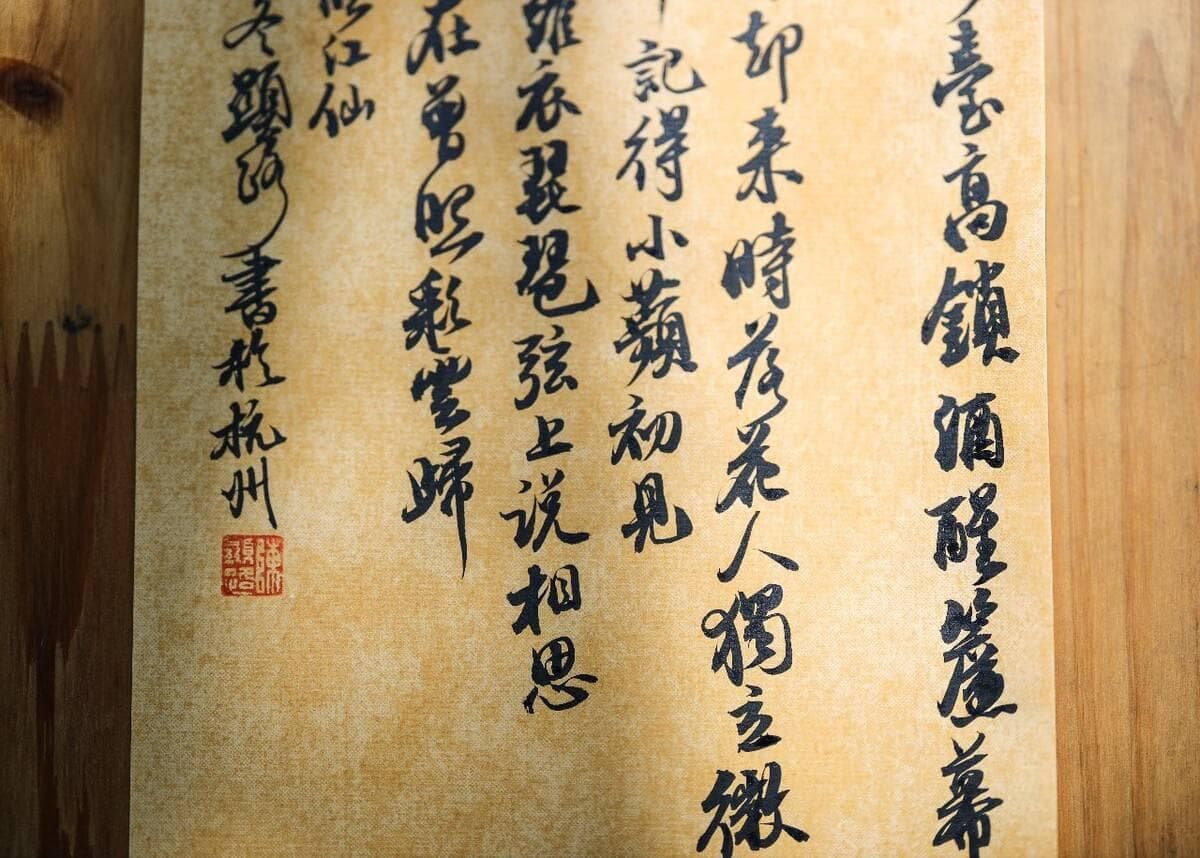 臺高鎖酒醒簾幕
却来時落花人獨立微
記得小蘋初見
羅衣琵琶弦上说相思
在曾照彩雲歸
江仙
冬顕路書於杭州
陳